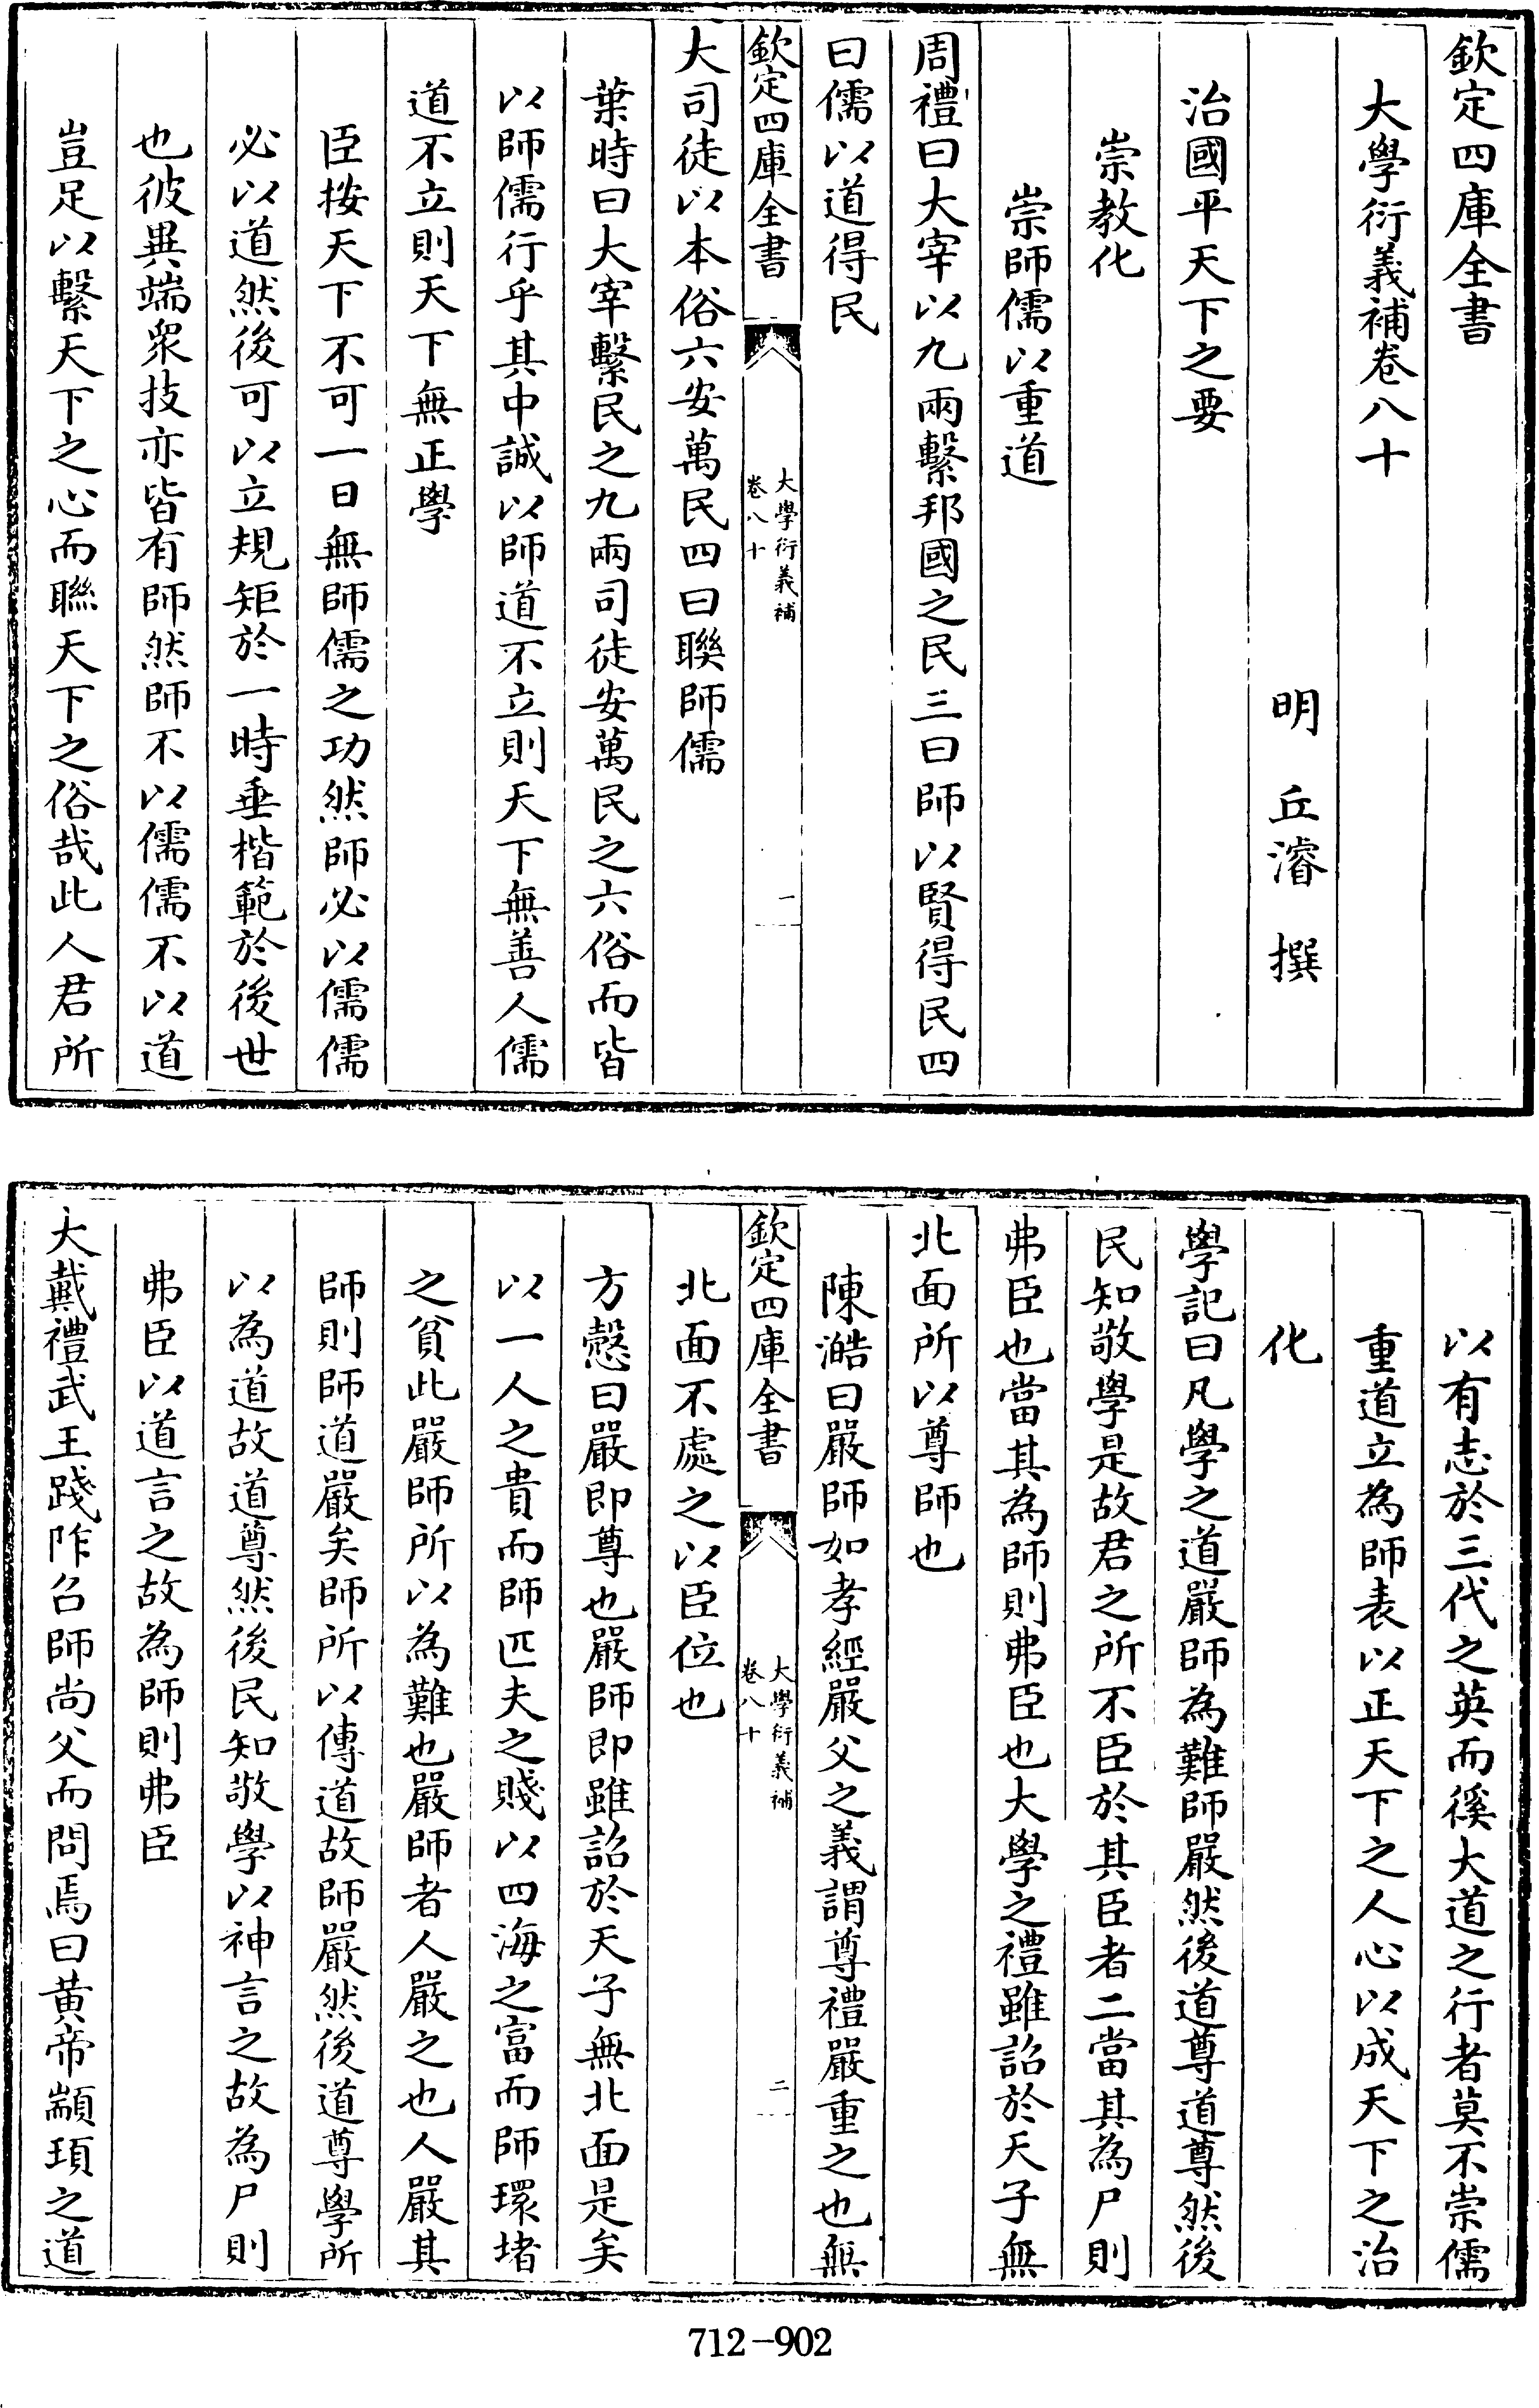 欽定四庫全書
大學衍義補卷八十
明　丘濬　撰
治國平天下之要
崇教化
崇師儒以重道
周禮曰大宰以九兩繫邦國之民三曰師以賢得民四
曰儒以道得民
欽定四庫全書
大學衍義補
卷八十
一
大司徒以本俗六安萬民四曰聯師儒
葉時曰大宰繫民之九兩司徒安萬民之六俗而皆
以師儒行乎其中誠以師道不立則天下無善人儒
道不立則天下無正學
臣按天下不可一日無師儒之功然師必以儒儒
必以道然後可以立規矩於一時垂楷範於後世
也彼異端衆技亦皆有師然師不以儒儒不以道
豈足以繫天下之心而聯天下之俗哉此人君所
以有志於三代之英而徯大道之行者莫不崇儒
重道立為師表以正天下之人心以成天下之治
化
學記曰凡學之道嚴師為難師嚴然後道尊道尊然後
民知敬學是故君之所不臣於其臣者二當其為尸則
弗臣也當其為師則弗臣也大學之禮雖詔於天子無
北面所以尊師也
陳澔曰嚴師如孝經嚴父之義謂尊禮嚴重之也無
欽定四庫全書
大學衍義補
卷八十
二
北面不處之以臣位也
方慤曰嚴即尊也嚴師即雖詔於天子無北面是矣
以一人之貴而師匹夫之賤以四海之富而師環堵
之貧此嚴師所以為難也嚴師者人嚴之也人嚴其
師則師道嚴矣師所以傳道故師嚴然後道尊學所
以為道故道尊然後民知敬學以神言之故為尸則
弗臣以道言之故為師則弗臣
大戴禮武王踐阼召師尚父而問焉曰黄帝顓頊之道
712-902